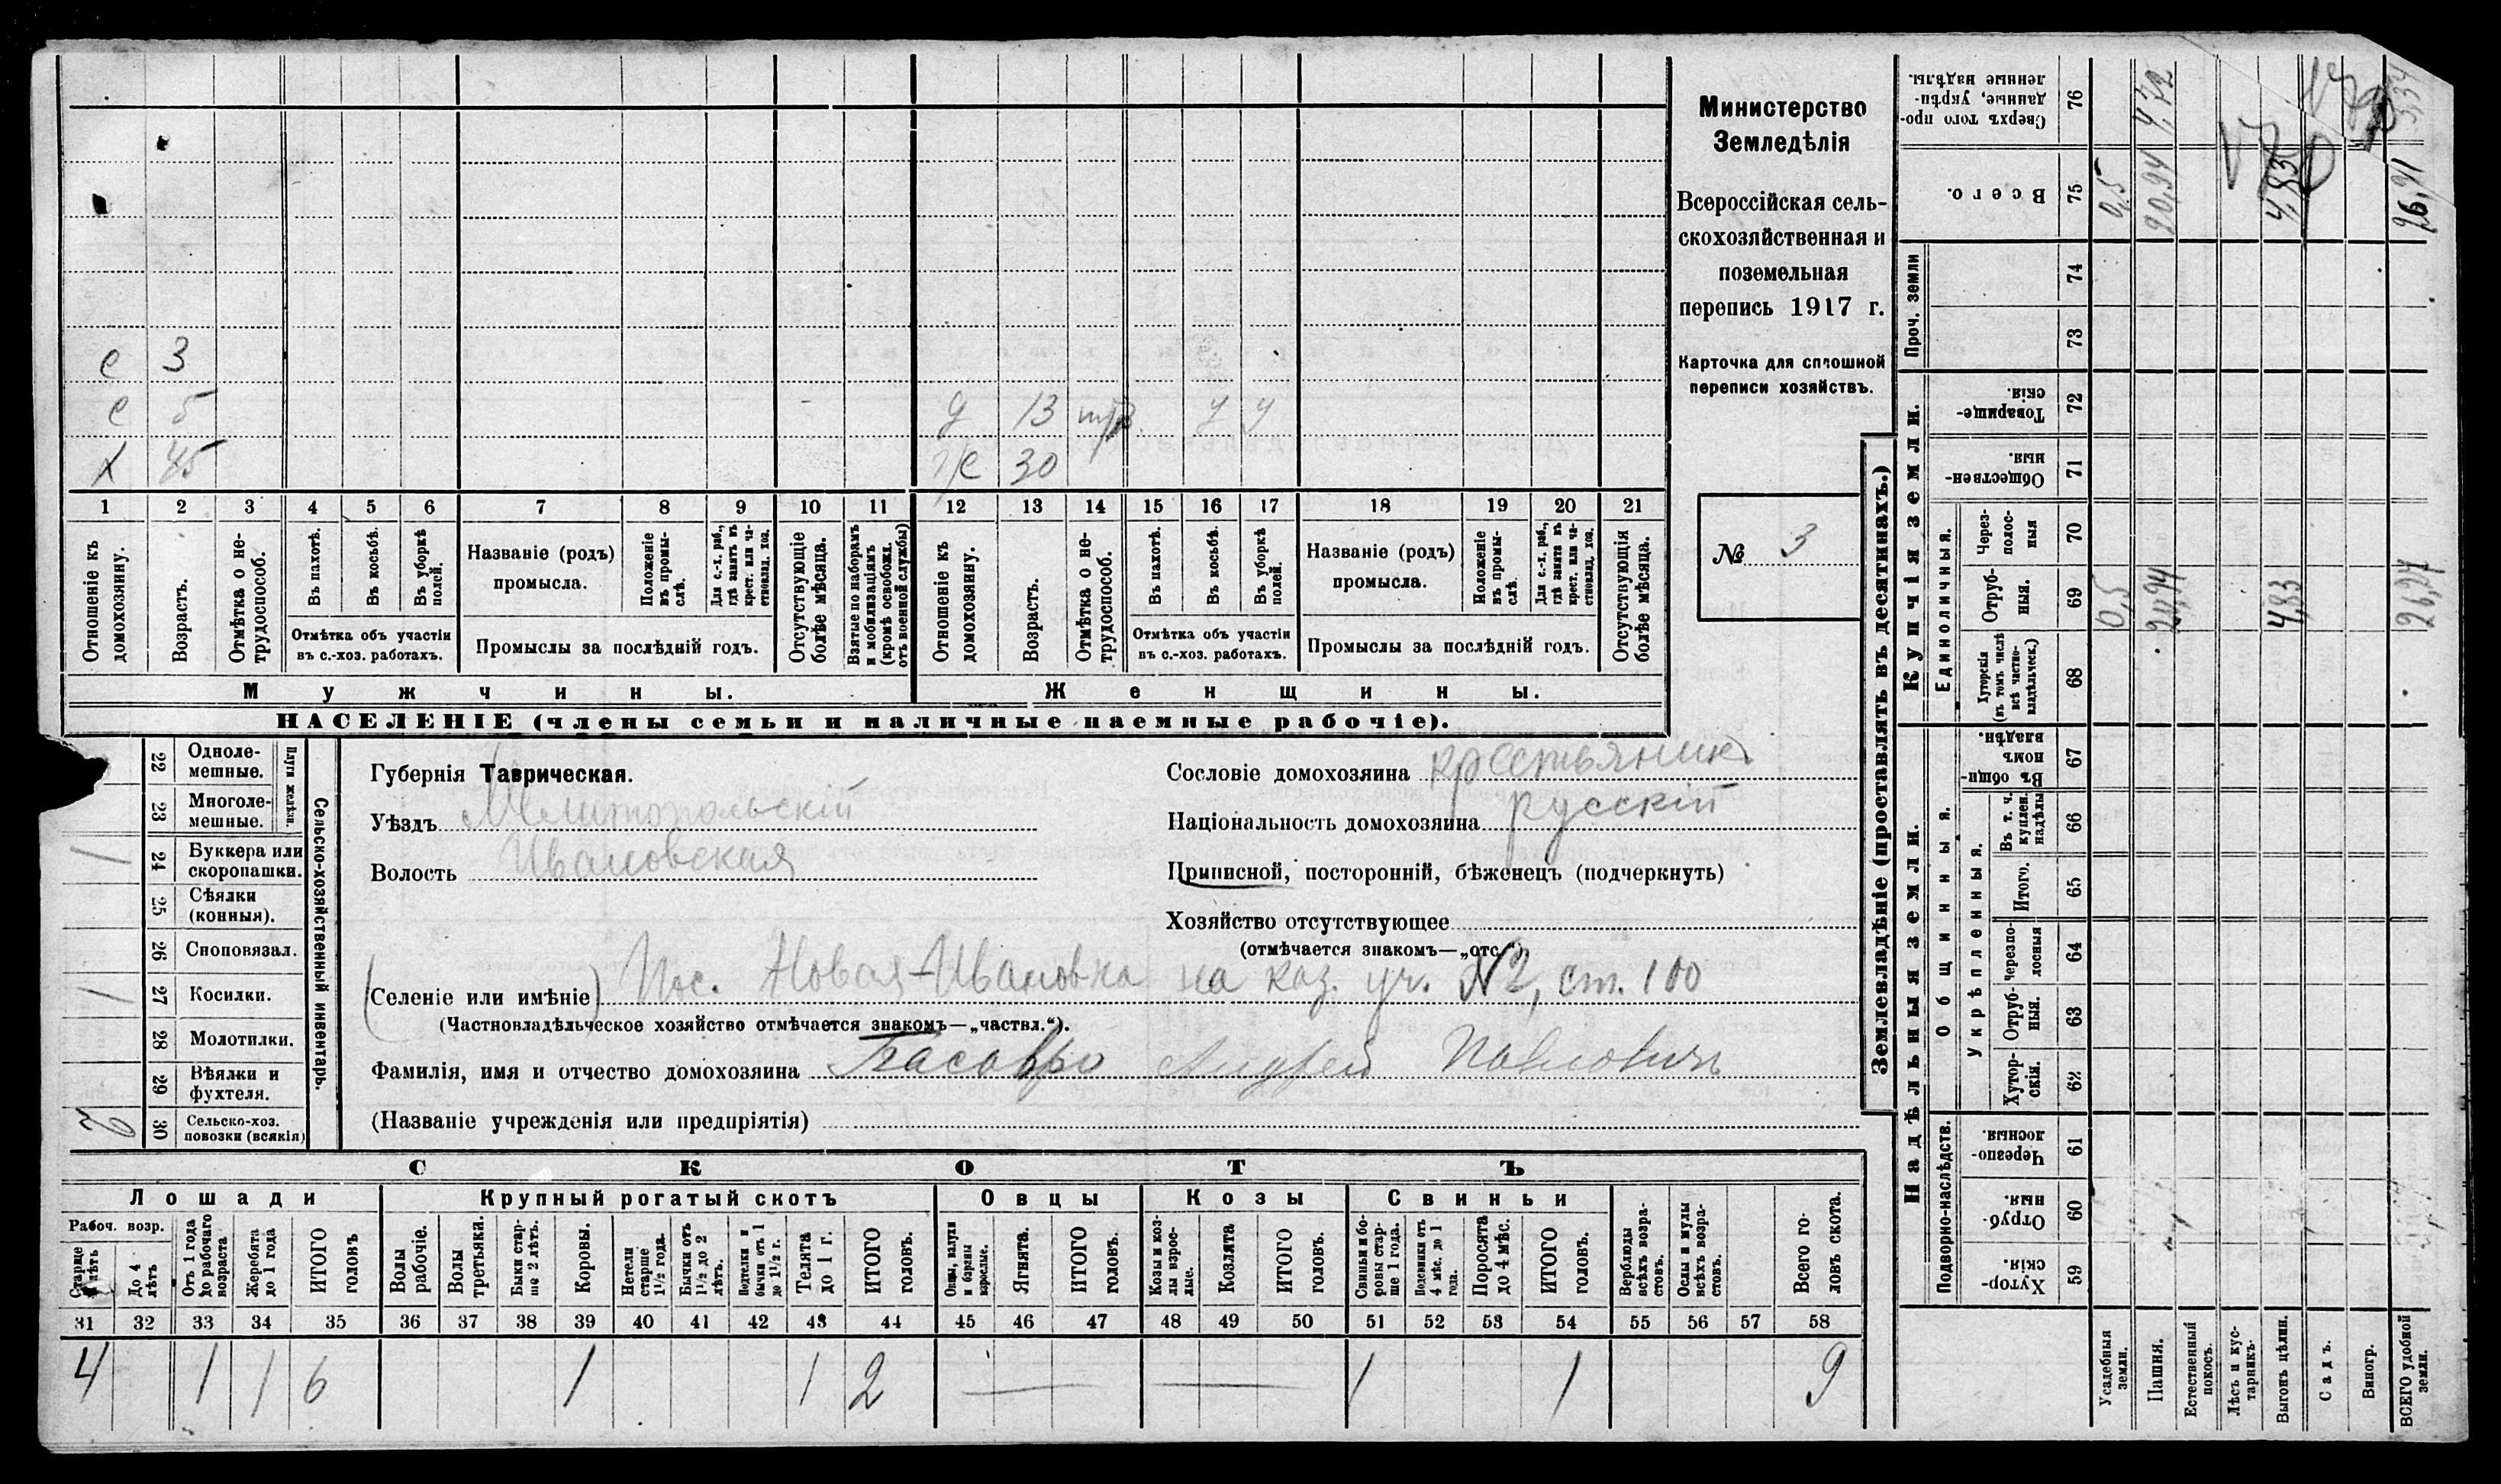 Министерство
Земледѣлія
Всероссійская сель-
скохозяйственная и
поземельная
перепись 1917 г.
Карточка для сплошной
переписи хозяйствъ.
№ 3
е 3
е 5
х 45
д 13 у у
ж 30
1 2 3 4 5 6 7 8 9 10 11 12 13 14 15 16 17 18 19 20 21
Отношеніе къ домохозяину.
Возрастъ.
Отмѣтка о не-трудоспособ.
Въ пахотѣ.
Въ косьбѣ.
Въ уборкѣ полей.
Отмѣтка объ участіи
въ с.-хоз. работахъ.
Названіе (родъ)
промысла.
Положеніе въ промы-слѣ.
Для с.-х. раб., гдѣ занятъ въ крест. или ча-стновлад. хоз.
Промыслы за послѣдній годъ.
Отсутствующіе болѣе мѣсяца.
Взятые по наборамъ и мобилизаціямъ (кромѣ освобожд. отъ военной службы)
Отношеніе къ домохозяину.
Возрастъ.
Отмѣтка о не-трудоспособ.
Въ пахотѣ.
Въ косьбѣ.
Въ уборкѣ полей.
Отмѣтка объ участіи
въ с.-хоз. работахъ.
Названіе (родъ)
промысла.
Положеніе въ промы-слѣ.
Для с.-х. раб., гдѣ занята въ крест. или ча-стновлад. хоз.
Промыслы за послѣдній годъ.
Отсутствующія болѣе мѣсяца.
Мужчины.
Женщины.
НАСЕЛЕНІЕ (члены семьи и наличные наемные рабочіе).
22 Одноле-мешные.
23 Многоле-мешные.
Плуги желѣзн.
1 24 Буккера или скоропашки.
25 Сѣялки (конныя).
26 Сноповязал.
1 27 Косилки.
28 Молотилки.
29 Вѣялки и фухтеля.
30 Сельско-хоз. повозки (всякія)
Сельско-хозяйственный инвентарь.
Губернія Таврическая.
Уѣздъ Мелитопольскій
Волость Ивановская
Сословіе домохозяина крестьянинъ
Національность домохозяина русскій
Приписной, посторонній, бѣженецъ (подчеркнуть)
Хозяйство отсутствующее
(отмѣчается знакомъ—„отс.“)
(Селеніе или имѣніе) Пос. Новая-Ивановка на каз. уч. №2, ст. 100
(Частновладѣльческое хозяйство отмѣчается знакомъ—„частвл.“).
Фамилія, имя и отчество домохозяина Басавро Андрей Павловичъ
(Названіе учрежденія или предпріятія)
СКОТЪ
Лошади
Крупный рогатый скотъ
Овцы
Козы
Свиньи
Рабоч. возр.
Старше 4 лѣтъ
До 4 лѣтъ
Отъ 1 года до рабочаго возраста
Жеребята до 1 года
ИТОГО головъ
Волы рабочіе.
Волы третьяки.
Быки стар-ше 2 лѣтъ.
Коровы.
Нетели старше 1½ года.
Бычки отъ 1½ до 2 лѣтъ.
Подтелки и бычки отъ 1 до 1½ г.
Телята до 1 г.
ИТОГО головъ.
Овцы, валухи и бараны взрослые.
Ягнята.
ИТОГО головъ.
Козы и коз-лы взрос-лые.
Козлята
ИТОГО головъ.
Свиньи и бо-ровы стар-ше 1 года.
Подсвинки отъ 4 мѣс. до 1 года.
Поросята до 4 мѣс.
ИТОГО головъ.
Верблюды всѣхъ возра-стовъ.
Ослы и мулы всѣхъ возра-стовъ.
Всего го-ловъ скота.
31 32 33 34 35 36 37 38 39 40 41 42 43 44 45 46 47 48 49 50 51 52 53 54 55 56 57 58
4 1 1 6 1 1 2 — — 1 1 9
Землевладѣніе (проставлять въ десятинахъ.)
Надѣльныя земли.
Купчія земли.
Проч. земли
Подворно-наслѣдств.
Общинныя.
Укрѣпленныя.
Единоличныя.
Хутор-скія. 59
Отруб-ныя. 60
Черезпо-лосныя. 61
Хутор-скія. 62
Отруб-ныя. 63
Черезпо-лосныя 64
Итого. 65
Въ т. ч. куплен. надѣлы 66
Въ общи-номъ владѣн. 67
Хуторскія (въ томъ числѣ всѣ частно-владѣльческ.) 68
Отруб-ныя. 69
Через-полос-ныя 70
Обществен-ныя. 71
Товарище-скія. 72
73
74
Всего. 75
Сверхъ того про-данные, укрѣп-ленные надѣлы. 76
Усадебныя земли. 0,5 0,5
Пашня. 20,94 20,94 4,72
Естественный покосъ.
Лѣсъ и кус-тарникъ.
Выгонъ цѣлин. 4,83 4,83
Садъ.
Виногр.
ВСЕГО удобной земли. 26,27